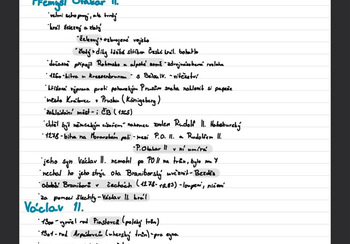 Přemysl Otakar II.
· velmi schopný, ale tvrdý
· král železný a zlatý
železný → ozbrojení vojsko
zlatý → díky těžbě stříbra České král. bohatlo
· dočasné připojil Rakousko a alpské země
· 1260 - bitva u Kressenbrunnu - s Bélou IV. - vítězství
· křížová výprava proti pohanským Prusům
město Královec v Prusku (Königsberg)
· zakládání měst - i ČB (1265)
· chtěl být německým císařem zvolen Rudolf I. Habsburský
· 1278 - bitva na Moravském poli - mezi P.O. II. a Rudolfem I.
P. Otakar II v ní umírá
· jeho syn Václav II. nemohl po PO II na trůn, bylo mu 7
nechal ho jeho strýc Ota Braniborský uvěznit - Bezděz
· období Braniborů v Čechách (1278-1283) - loupení, ničení
· za pomoci šlechty - Václav II. král
Václav II.
· 1300 - vymřel rod Piastovců (polský trůn)
· 1301 - rod Arpádovců (uherský trůn) - pro syna